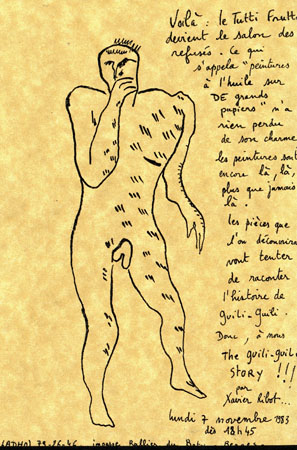 Voilà : le Tutti Frutti
devient le salon des
refusés. Ce qui
s'appela "peintures
à l'huile sur
DE grands
papiers" n'a
rien perdu
de son charme
les peintures sont
encore là, là,
plus que jamais
là.
les pièces que
l'on découvrira
vont tenter
de raconter
l'histoire de
Guili-Guili.
Donc, à nous
The Guili-Guili
STORY !!!
par
Xavier Ribot...
lundi 7 novembre 1983
dès 18h45
79.26.46. impasse